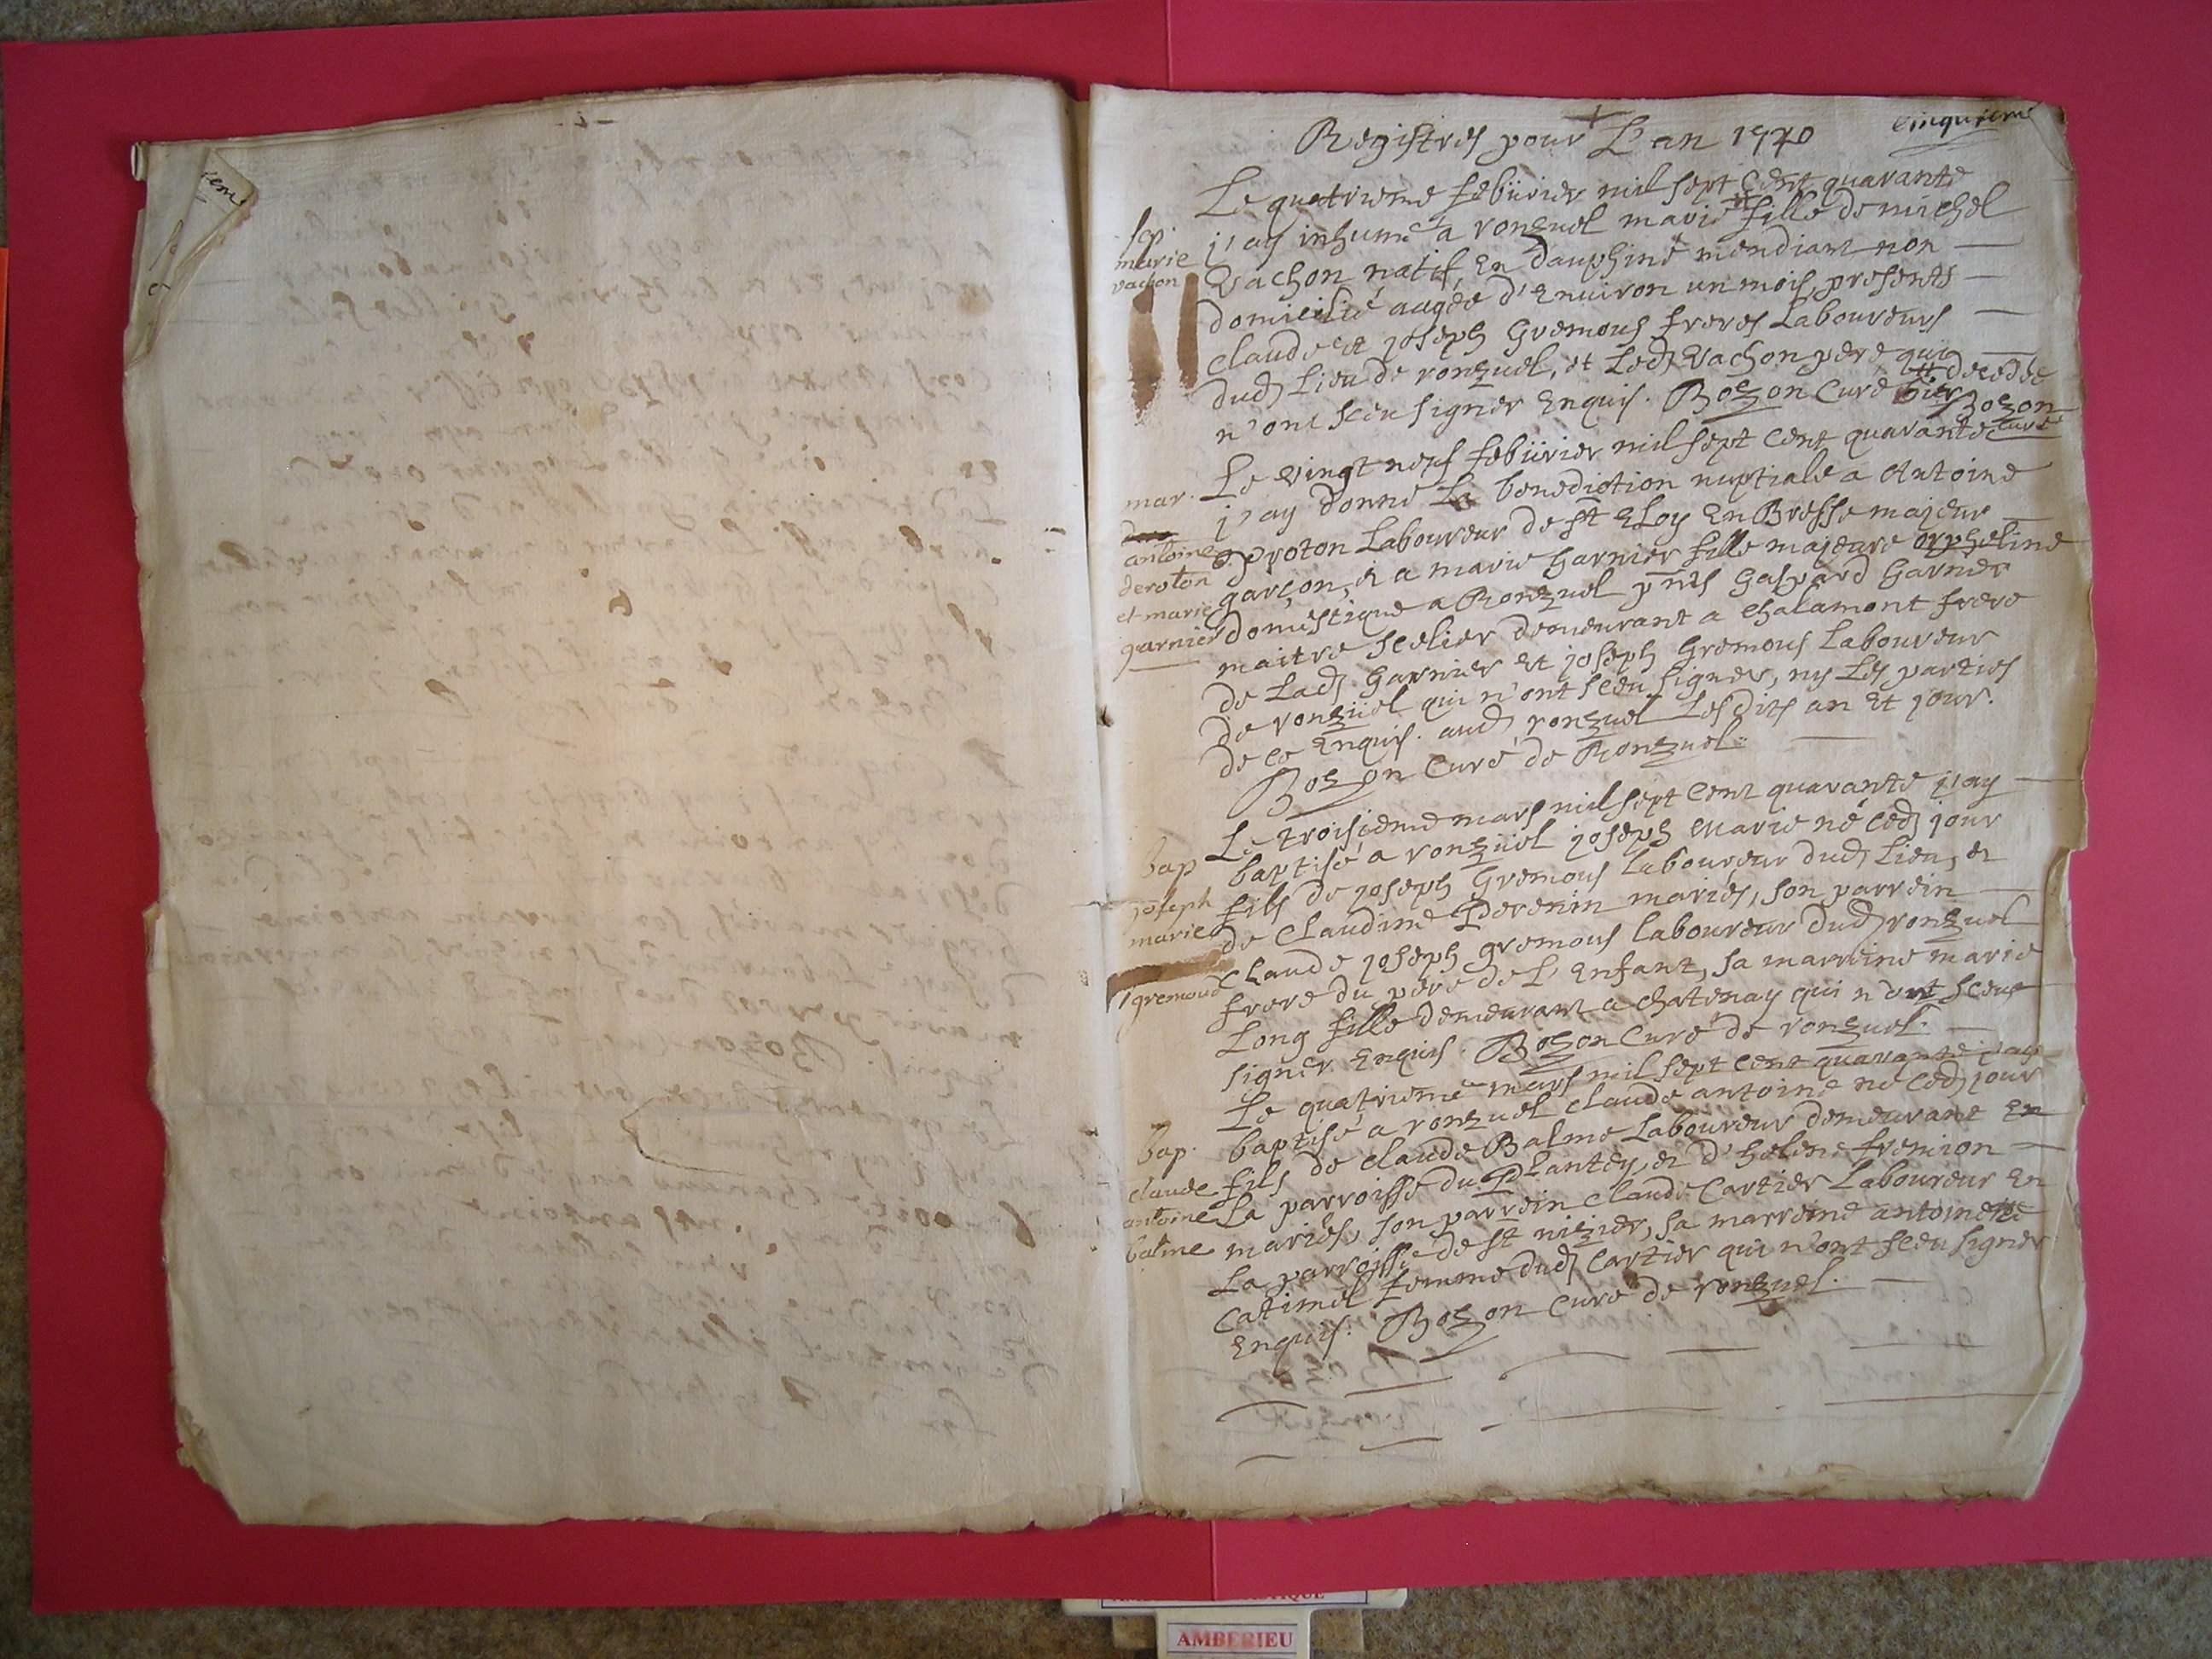 cinquieme
Registres pour L'an 1740
Le quatrieme febüvrier mil sept cent quarante
j'ay inhumé a ronzuel marie fille de michel
Vachon natif En dauphiné mendiant non
domicilié aagée d'Environ un mois, presents
claude et joseph Gremous freres Laboureurs
dud lieu de ronzuel, et Led Vachon pere qui
n'ont sceu signer Enquis. Bozon Curé # decedée
hier Bozon
curé
sep.
marie
vachon
Le vingt neuf febüvrier mil sept cent quarante
j'ay donné La benediction nuptiale a Antoine
Deroton Laboureur de st Eloy En Bresse majeur
garçon, et a marie Garnier fille majeure orpheline
domestique a Ronzuel pnts Gaspard Garnier
maitre scelier demeurant a chalamont frere
de Lad Garnier et joseph Gremous Laboureur
de ronzüel qui n'ont sceu signer, ny Les parties
de ce Enquis. aud ronzuel Lesdits an et jour.
Bozon Curé de Ronzuel
mar.
antoine
deroton
et marie
garnier
Le troisieme mars mil sept cent quarante j'ay
baptisé a ronzüel joseph Marie né ced jour
fils de joseph Gremous laboureur dud Lieu, et
de Claudine Perenin mariés, son parrein
Claude joseph gremous laboureur dud ronzuel
frere du pere de L'Enfant, sa marreine marie
Long fille demeurant a chatenay qui n'ont sceu
signer Enquis. Bozon Curé de ronzuel.
bap
joseph
marie
gremoud
Le quatrieme mars mil sept cent quarante j'ay
baptisé a ronzuel claude antoine né ced jour
fils de claude Balme Laboureur demeurant En
La parroisse du Plantey, et d'helene fremion
mariés, son parrein Claude Cartier Laboureur En
La parroisse de st nizier, sa marreine antoinette
Catimel femme dud Cartier qui n'ont sceu signer
Enquis. Bozon Curé de ronzuel.
bap.
claude
antoine
balme
AMBERIEU